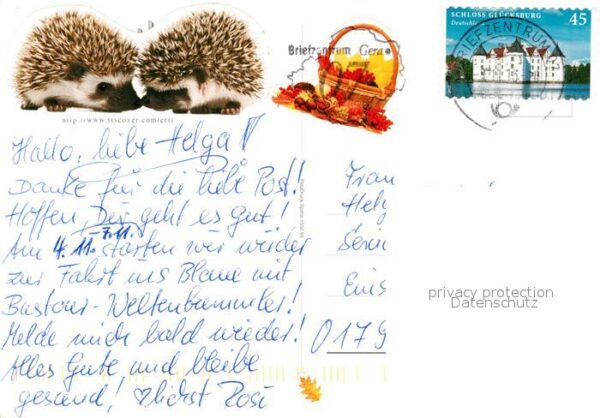 SCHLOSS GLÜCKSBURG 45
BRIEFZENTRUM
Briefzentrum Gera
http://www.tiscover.com/erti
Hallo, liebe Helga!
Danke für die liebe Post!!
Hoffen, Dir geht es gut!
Am 4.11.-7.11. starten wir wieder
zur Fahrt ins Blaue mit
Bastour-Weltenbummler!
Melde mich bald wieder!
Alles Gute und bleibe
gesund! ♡lichst Rosi
Frau
Helg
0179
privacy protection
Datenschutz